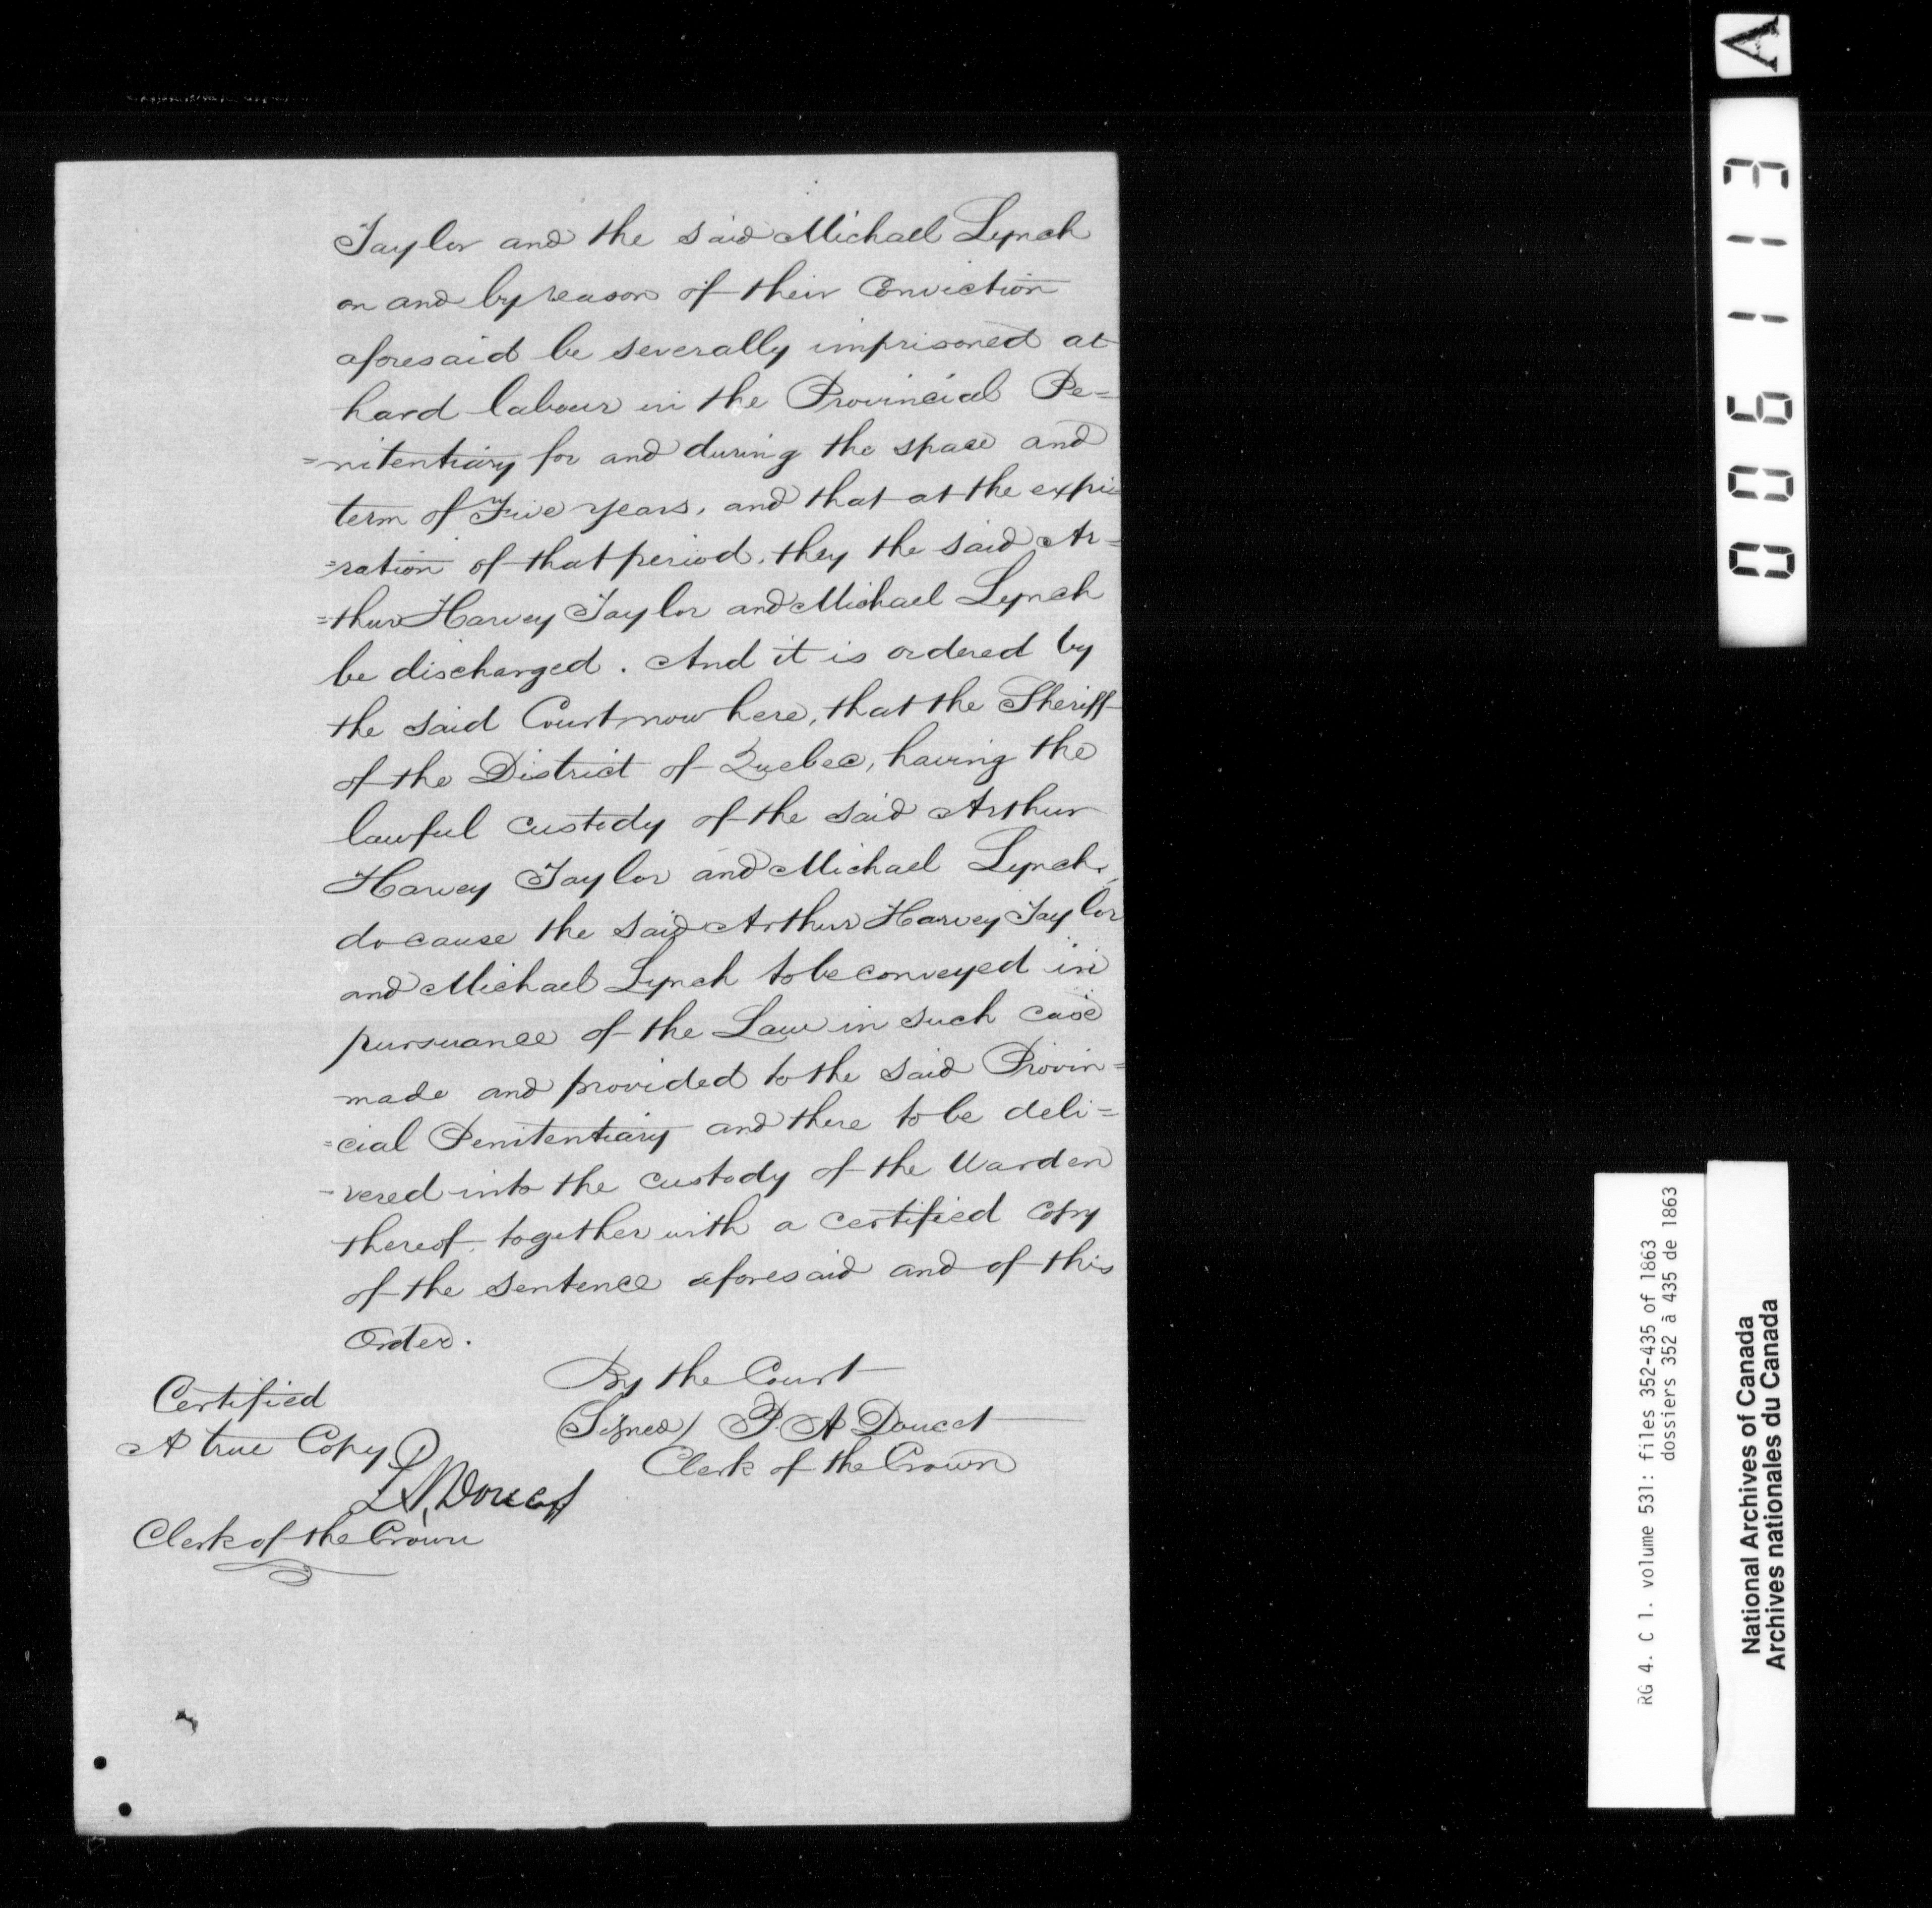 Taylor and the said Michael Lynch
on and by reason of their Conviction
aforesaid be severally imprisoned at
hard labour in the Provincial Pe=
=nitentiary for and during the space and
term of Five years, and that at the expi
=ration of that period, they the said Ar=
=thur Harvey Taylor and Michael Lynch
be discharged. And it is ordered by
the said Court now here, that the Sheriff
of the District of Quebec, having the
lawful custody of the said Arthur
Harvey Taylor and Michael Lynch,
do cause the said Arthur Harvey Taylor
and Michael Lynch to be conveyed in
pursuance of the Law in such case
made and provided to the said Provin=
=cial Penitentiary and there to be deli=
-vered into the custody of the Warden
thereof, together with a certified copy
of the sentence aforesaid and of this
Order.
By the Court
(Signed) P. A Doucet
Clerk of the Crown
Certified
A true Copy
P.A. Doucet
Clerk of the Crown
A
006113
RG 4. C 1. volume 531: files 352-435 of 1863
dossiers 352 à 435 de 1863
National Archives of Canada
Archives nationales du Canada